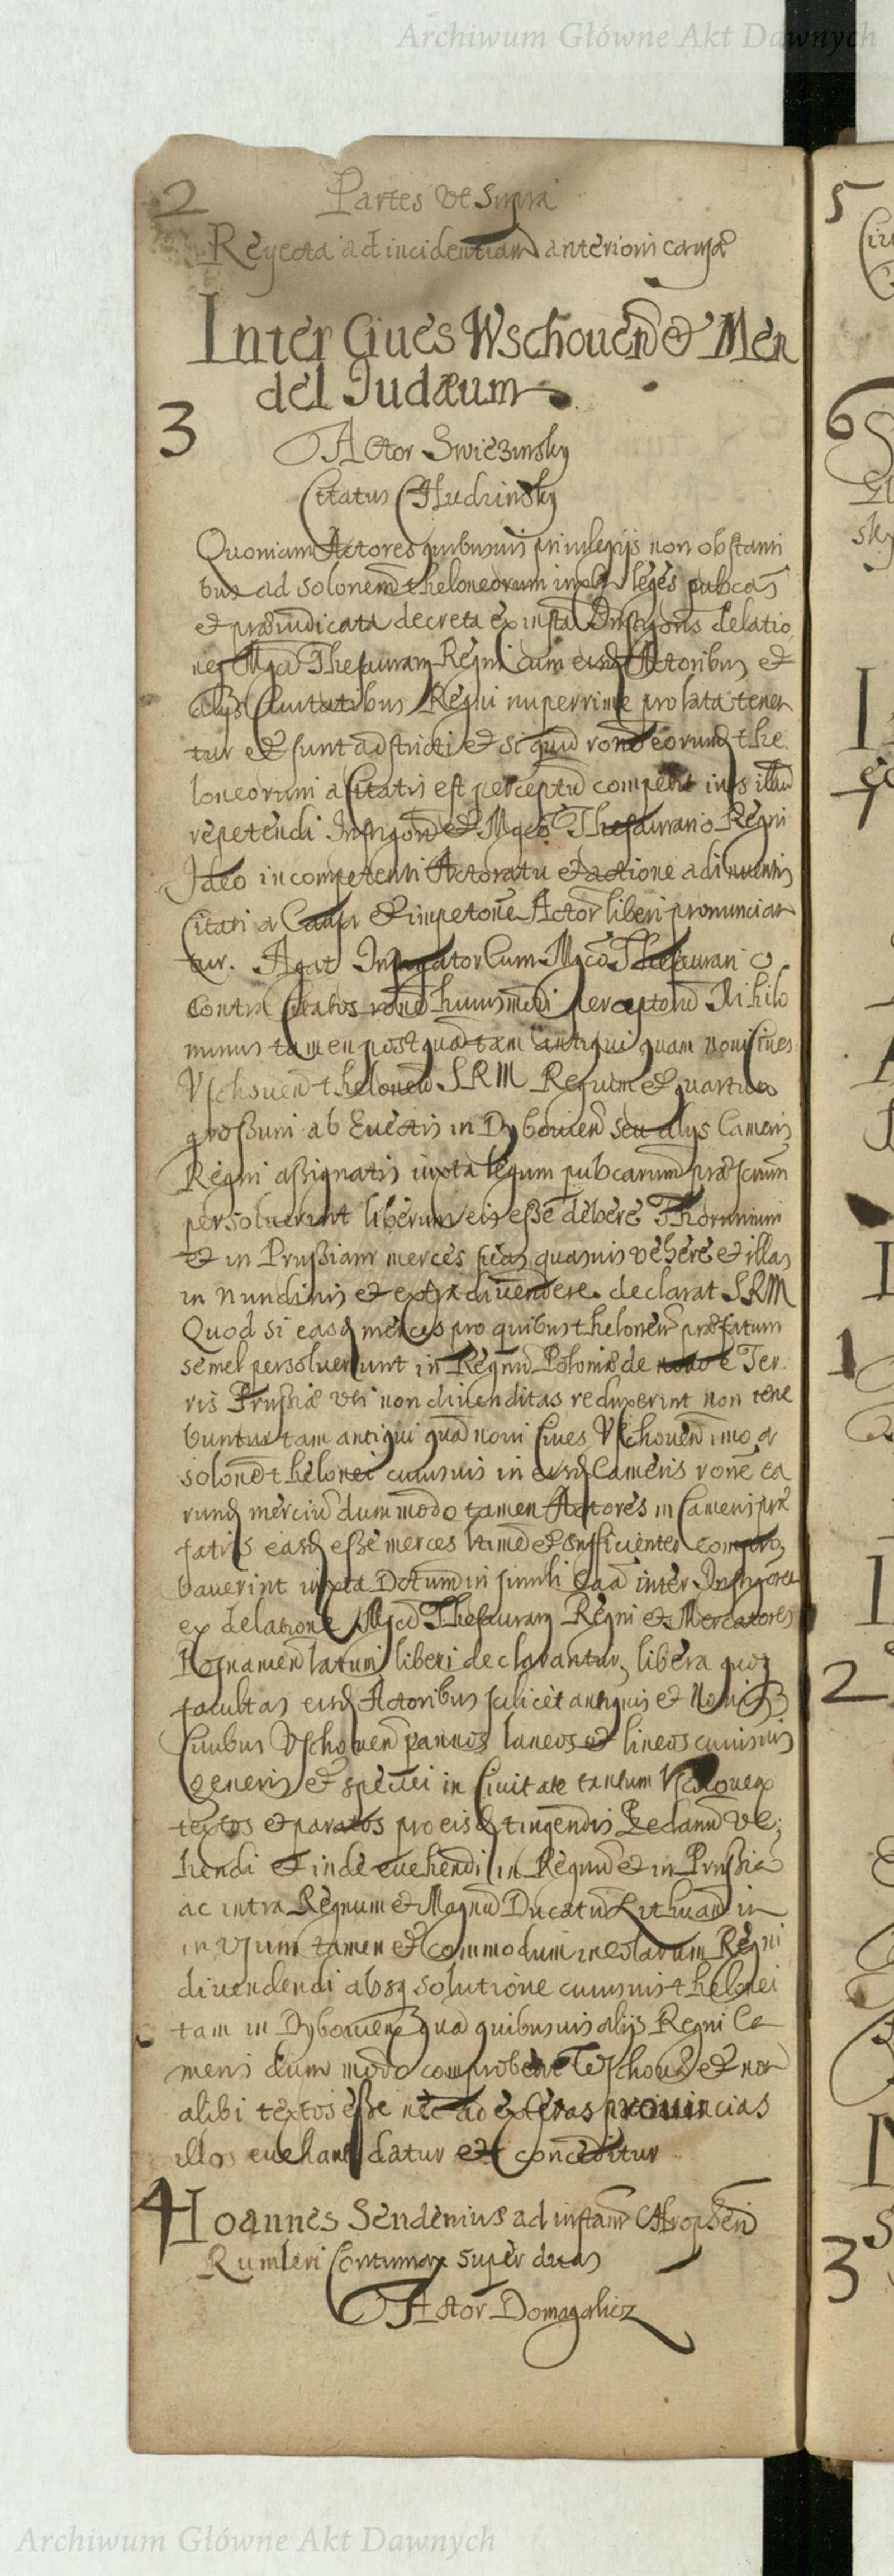 Archiwum Główne Akt Dawnych
2 Partes ut supra
Reyecta ad incidentiam anterioris causæ
Inter Ciues Wschouen̄ & Men
del Iudæum
3
Actor Swiezinsky
Citatus Chudzinsky
Quoniam Actores quibusuis priuilegijs non obstanti
bus ad solonem theloneorum iuxta leges pubcas
et præiudicata decreta ex insta Instigoris delatio
nes Mgci Thesaurarij Regni cum eisd Actoribus et
alijs Ciuitatibus Regni nuperrime prolata tenen
tur et sunt adstricti et si quid rone eorund the
loneorum a Citatis est perceptu competit ius illud
repetendi Instigori et Mgco Thesaurario Regni
Ideo incompetenti Actoratu et actione adinuentis
Citati a Causa et impetone Actor liberi pronuncian
tur. Agat Instigator cum Mgco Thesaurario
contra Citatos rone huiusmodi perceptoru Nihilo
minus tamen postquā tam antiqui quam noui Ciues
Vschouen theloneu SRM Regium et quartum
großum ab Euectis in Dybouien seu alys Cameris
Regni aßignatis iuxta legum pubcarum præscriptum
persoluerint liberum eis eße debere Thorunium
et in Prußiam merces suas quasuis vehere et illas
in nundinis et extra diuendere declarat SRM
Quod si easd merces pro quibus theloneu præfatum
semel persoluerunt in Regnu Poloniæ de nouo e Ter
ris Prussiæ uti non diuenditas reduxerint non tene
buntur tam antiqui quā noui Ciues Vschouen imo a
solone thelonei cuiusuis in eisd Cameris rone ea
rund merciu dummodo tamen Actores in Cameris præ
fatis easd eße merces ltime et sufficienter compro
bauerint iuxta Dctum in simili caā inter Instigorem
ex delatione Mgci Thesaurarij Regni et Mercatores
Posnanien latum liberi declarantur, libera quoq
facultas eisd Actoribus scilicet antiquis et Nouis
Ciuibus Vschouen pannos laneos et lineos cuiusuis
generis et speciei in Ciuitate tantum Vschouen
textos et paratos pro eisd tingendis Gedanu ve
hendi et inde euehendi in Regnu et in Prußia
ac intra Regnum et Magnu Ducatu Lithuan in
in usum tamen et commodum incolarum Regni
diuendendi absq solutione cuiusuis thelonei
tam in Dybouien quā quibusuis alijs Regni Ca
meris dum modo comprobent Wschouæ et non
alibi textos eße nec ad exteras prouincias
illos euehant datur et conceditur
4 Ioannes Sendenius ad instam
Rumleri Contumax super duas
Actor Domagalicz
5
6
7
1
2
3
Archiwum Główne Akt Dawnych